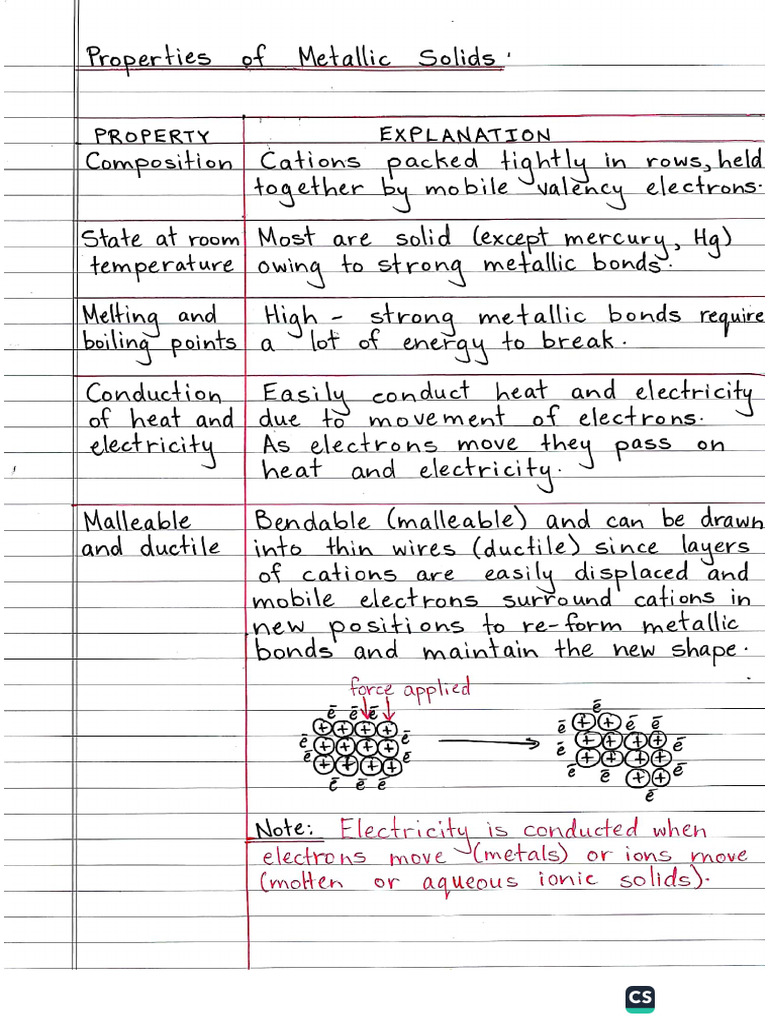 Properties of Metallic Solids.
PROPERTY
EXPLANATION
Composition
Cations packed tightly in rows, held
together by mobile valency electrons.
State at room
temperature
Most are solid (except mercury, Hg)
owing to strong metallic bonds.
Melting and
boiling points
High - strong metallic bonds require
a lot of energy to break.
Conduction
of heat and
electricity
Easily conduct heat and electricity
due to movement of electrons.
As electrons move they pass on
heat and electricity.
Malleable
and ductile
Bendable (malleable) and can be drawn
into thin wires (ductile) since layers
of cations are easily displaced and
mobile electrons surround cations in
new positions to re-form metallic
bonds and maintain the new shape.
force applied
ē ē ē
+ + + +
ē + + + + ē
ē + + + + ē
ē ē ē
ē
ē + + ē ē
ē + + + + ē
ē ē + + + + ē
+ + ē
ē
Note: Electricity is conducted when
electrons move (metals) or ions move
(molten or aqueous ionic solids).
CS